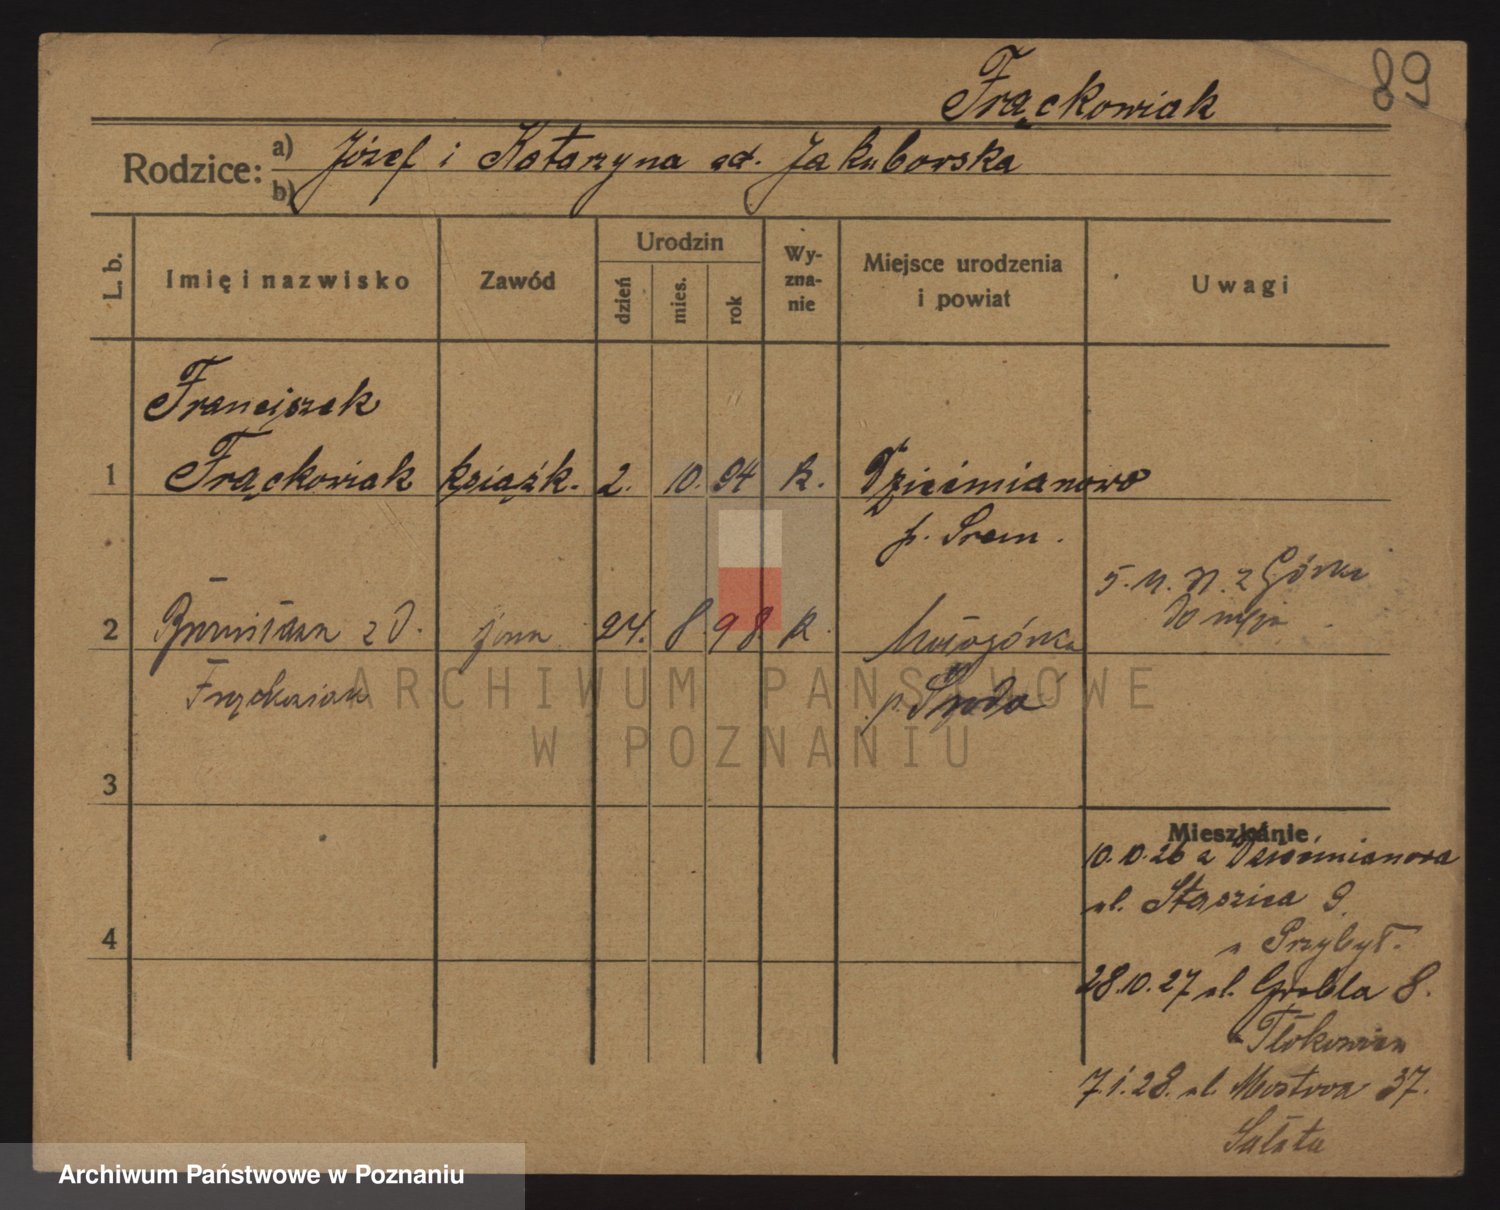 89
Frąckowiak
Rodzice: a) Józef i Katarzyna zd. Jakuborska
b)
L. b. Imię i nazwisko Zawód Urodzin dzień mies. rok Wyznanie Miejsce urodzenia i powiat Uwagi
Franciszek
1 Frąckowiak książk. 2. 10. 94 R. Dziećmianowo
p. Śrem.
5. 11. 31. z Górki
do męża
2 Bronisława z D. żona 24. 8. 98. R.
Frąckowiak p. Środa
3
Mieszkanie
10.10.26 z Dziećmianowa
ul. Staszica 9
4
u Przybył.
28.10.27 ul. Grobla 8.
7.1.28. ul. Mostowa 37.
Sałata
ARCHIWUM PAŃSTWOWE
W POZNANIU
Archiwum Państwowe w Poznaniu